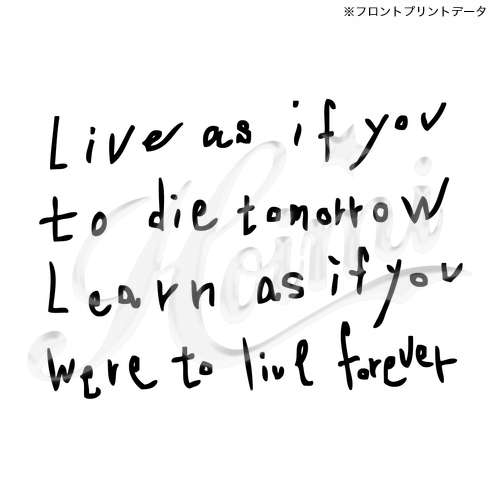 ※フロントプリントデータ
Live as if you
to die tomorrow
Learn as if you
were to live forever
Hoimi